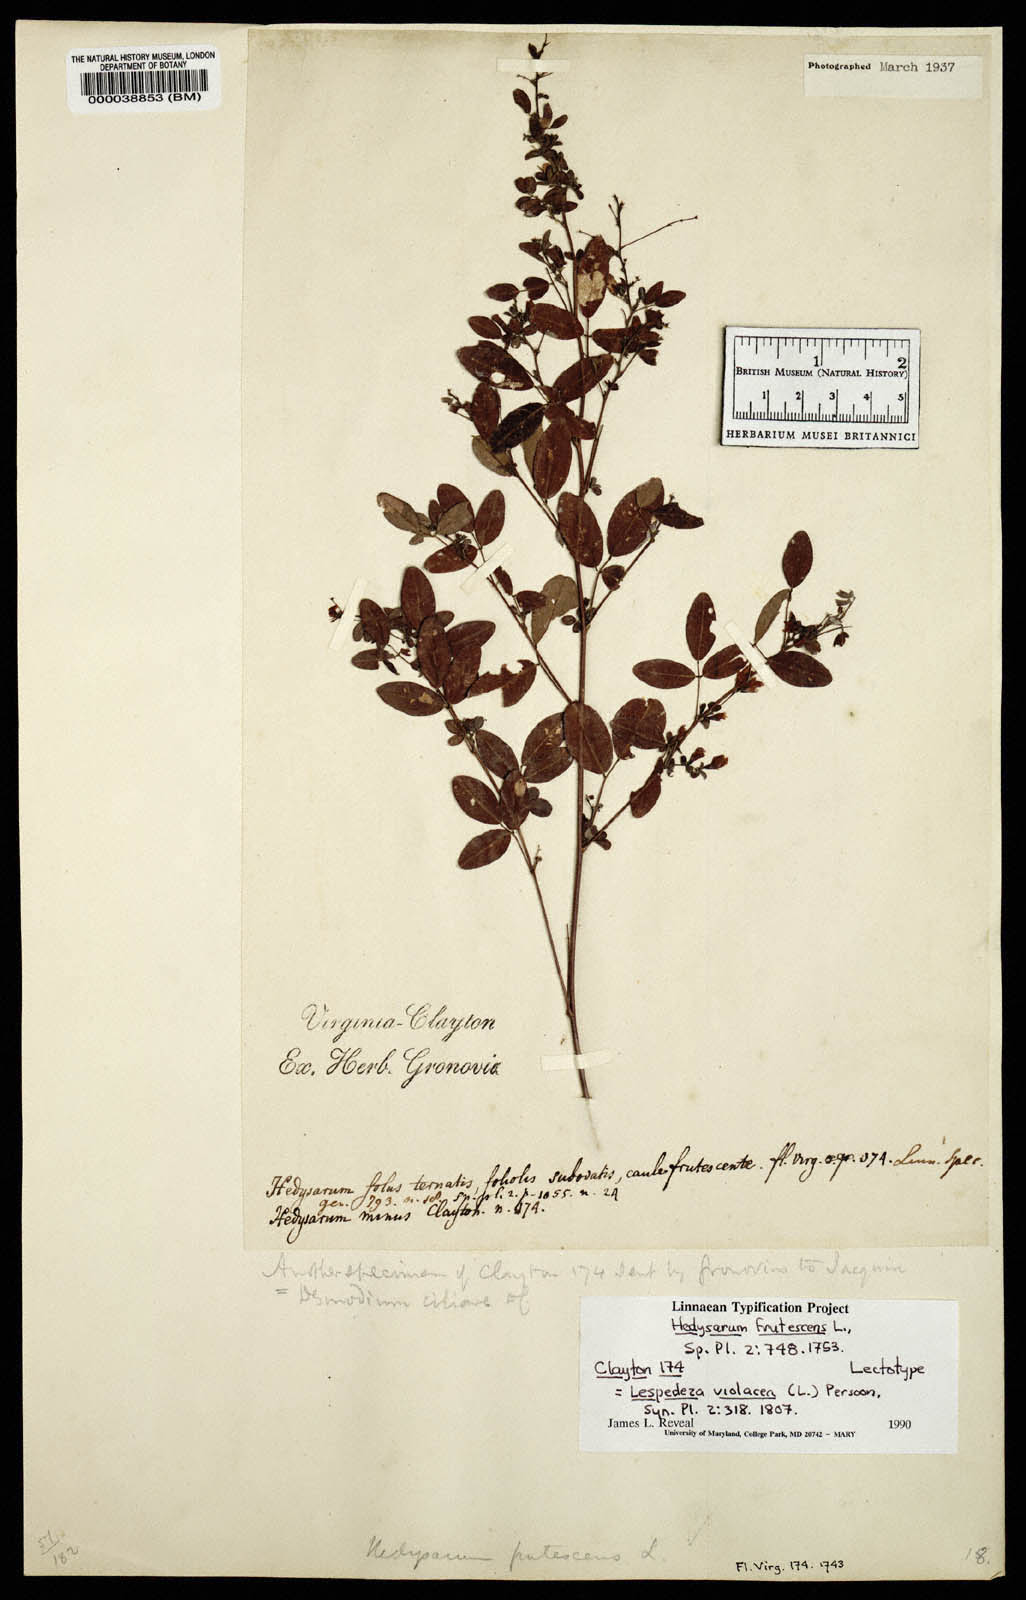 THE NATURAL HISTORY MUSEUM, LONDON
DEPARTMENT OF BOTANY
000038853 (BM)
Photographed March 1937
1 2
BRITISH MUSEUM (NATURAL HISTORY)
1 2 3 4 5
HERBARIUM MUSEI BRITANNICI
Virginia-Clayton
Ex. Herb. Gronovii
Hedysarum foliis ternatis, foliolis subovatis, caule frutescente. fl. Virg. 174. Linn. Spec.
gen. 793. n. sp. pl. 2. p. 1055. n. 24
Hedysarum minus Clayton. n. 174.
Another specimen of Clayton 174 sent by Gronovius to Jacquin
= Desmodium ciliare
Linnaean Typification Project
Hedysarum frutescens L.,
Sp. Pl. 2: 748. 1753.
Clayton 174 Lectotype
= Lespedeza violacea (L.) Persoon,
Syn. Pl. 2: 318. 1807.
James L. Reveal 1990
University of Maryland, College Park, MD 20742 – MARY
182
Hedysarum frutescens L.
Fl. Virg. 174. 1743
18.